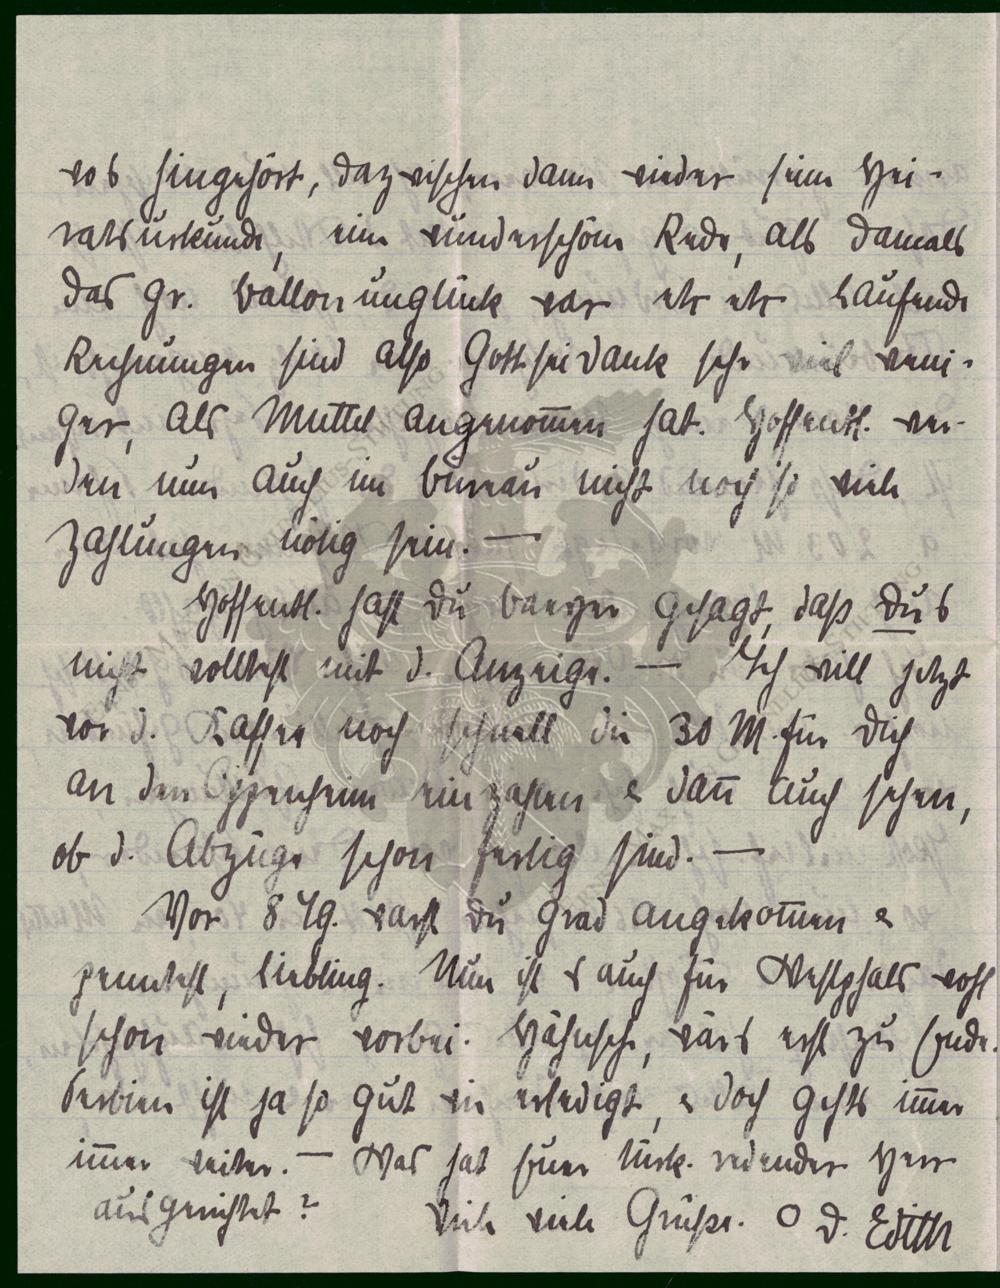 wos hingehört, dazwischen dann wieder seine Hei-
ratsurkunde, eine wunderschöne Rede, als damals
das gr. Ballonunglück war etc etc Laufende
Rechnungen sind also Gottseidank sehr viel weni-
ger, als Muttel angenom̅en hat. Hoffentl. wer-
den nun auch im Bureau nicht noch so viele
Zahlungen nötig sein. —
Hoffentl. hast Du gesagt, daß Du's
nicht wolltest mit d. Anzeige. — Ich will jetzt
vor d. Kaffee noch schnell die 30 M. für Dich
an den Oppenheim einzahlen & dan̅ auch sehen,
ob d. Abzüge schon fertig sind. —
Vor 8 Tg. warst Du grad angekom̅en &
penntest, Liebling. Nun ist's auch für Westphals wohl
schon wieder vorbei. Hähnsche, wär's erst zu Ende.
Serbien ist ja so gut wie erledigt, & doch gehts im̅er
im̅er weiter. — Was hat Euer türk. redender Herr
ausgerichtet? Viele viele Grüße. O D. Edith